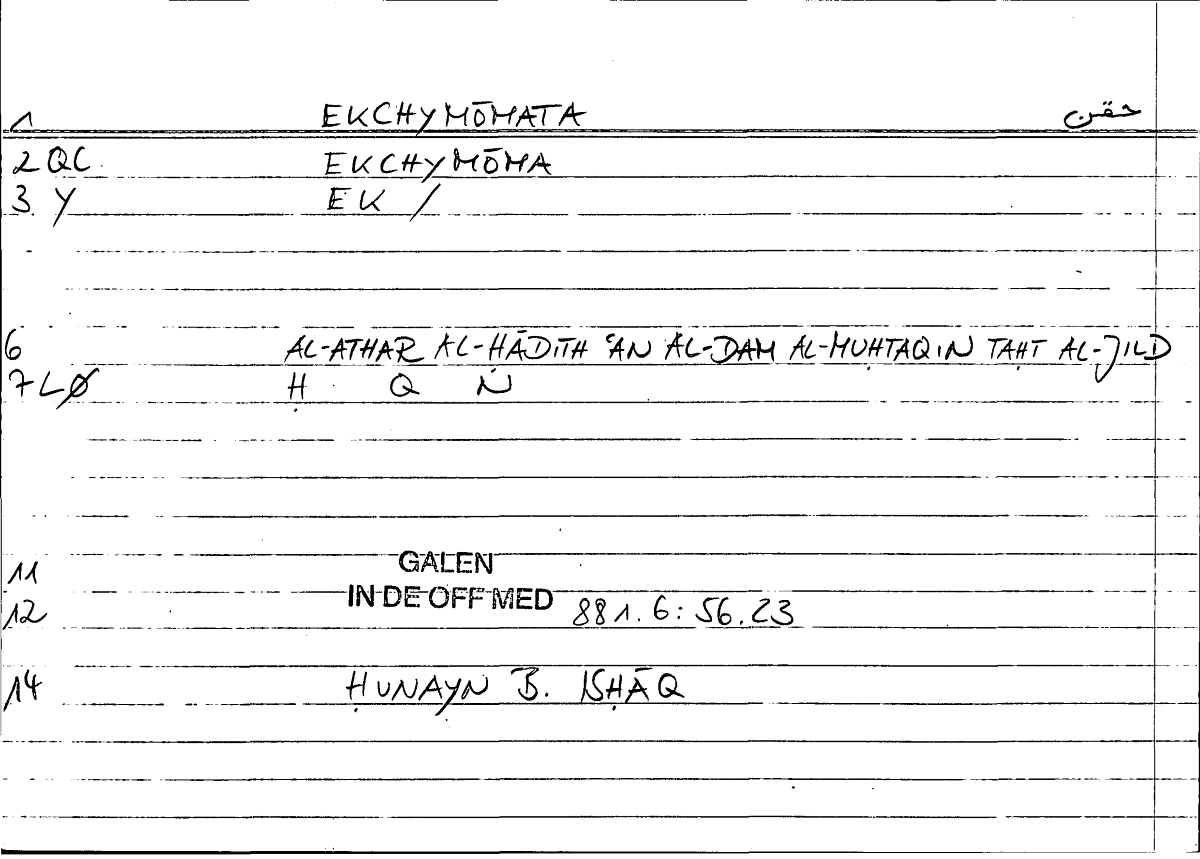 1 EKCHYMŌMATA حقن
2 QC. EKCHYMŌMA
3. Y EK /
6 AL-ATHAR AL-ḤĀDITH ʿAN AL-DAM AL-MUḤTAQIN TAḤT AL-JILD
7 LØ Ḥ Q N
11 GALEN
12 IN DE OFF MED 881.6:56.23
14 ḤUNAYN B. ISḤĀQ